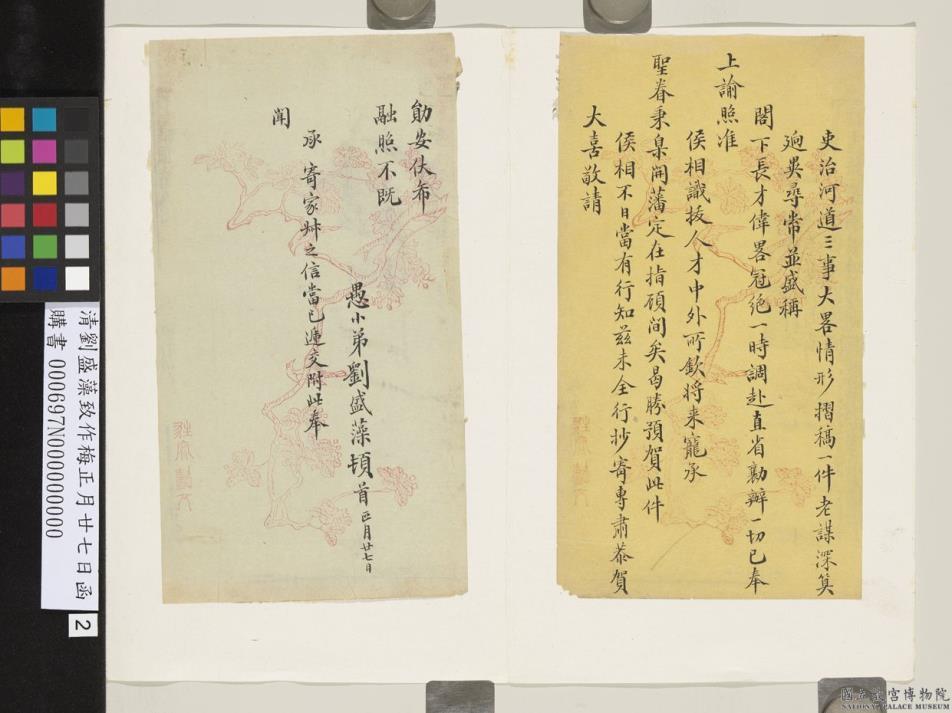 吏治河道三事大畧情形摺稿一件老謀深算
迥異尋常並盛稱
閣下長才偉畧冠絶一時調赴直省勷辦一切已奉
上諭照准
侯相識拔人才中外所欽將来寵承
聖眷秉臬開藩定在指顧間矣曷勝預賀此件
侯相不日當有行知兹未全行抄寄專肅恭賀
大喜敬請
勛安伏布
融照不既
愚小弟劉盛藻頓首 正月廿七日
承寄家艸之信當已遞交附此奉
聞
清劉盛藻致作梅正月廿七日函
購書 000697N000000000
2
國立故宮博物院
NATIONAL PALACE MUSEUM